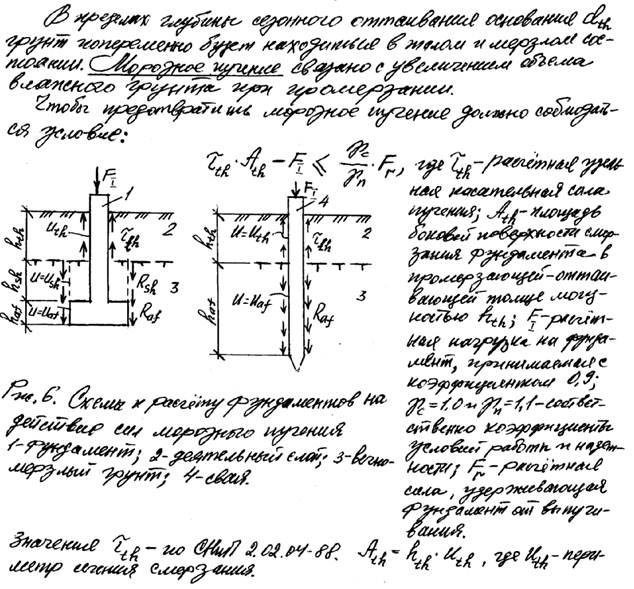 В пределах глубины сезонного оттаивания основания dth
грунт попеременно будет находиться в талом и мерзлом сос-
тоянии. Морозное пучение связано с увеличением объема
влажного грунта при промерзании.
Чтобы предотвратить морозное пучение должно соблюдать-
ся условие:
τth · Ath − FI ⩽ γc/γn · Fr, где τth – расчётная удель-
ная касательная сила
пучения; Ath – площадь
боковой поверхности смер-
зания фундамента в
промерзающей-оттаи-
вающей толще мощ-
ностью hth; FI – расчёт-
ная нагрузка на фунда-
мент, принимаемая с
коэффициентом 0,9;
γc = 1,0 и γn = 1,1 – соответ-
ственно коэффициенты
условий работы и надеж-
ности; Fr – расчётная
сила, удерживающая
фундамент от выпучи-
вания.
FI
1
Uth
τth
2
hth
hsh
U=Ush
Rsh
3
haf
U=Uaf
Raf
FI
4
U=Uth
τth
2
hth
U=Uaf
haf
3
Рис. 6. Схема к расчёту фундаментов на
действие сил морозного пучения
1-фундамент; 2-деятельный слой; 3-вечно-
мерзлый грунт; 4-свая.
Значения τth – по СНиП 2.02.04-88. Ath = hth · Uth, где Uth – пери-
метр сечения смерзания.